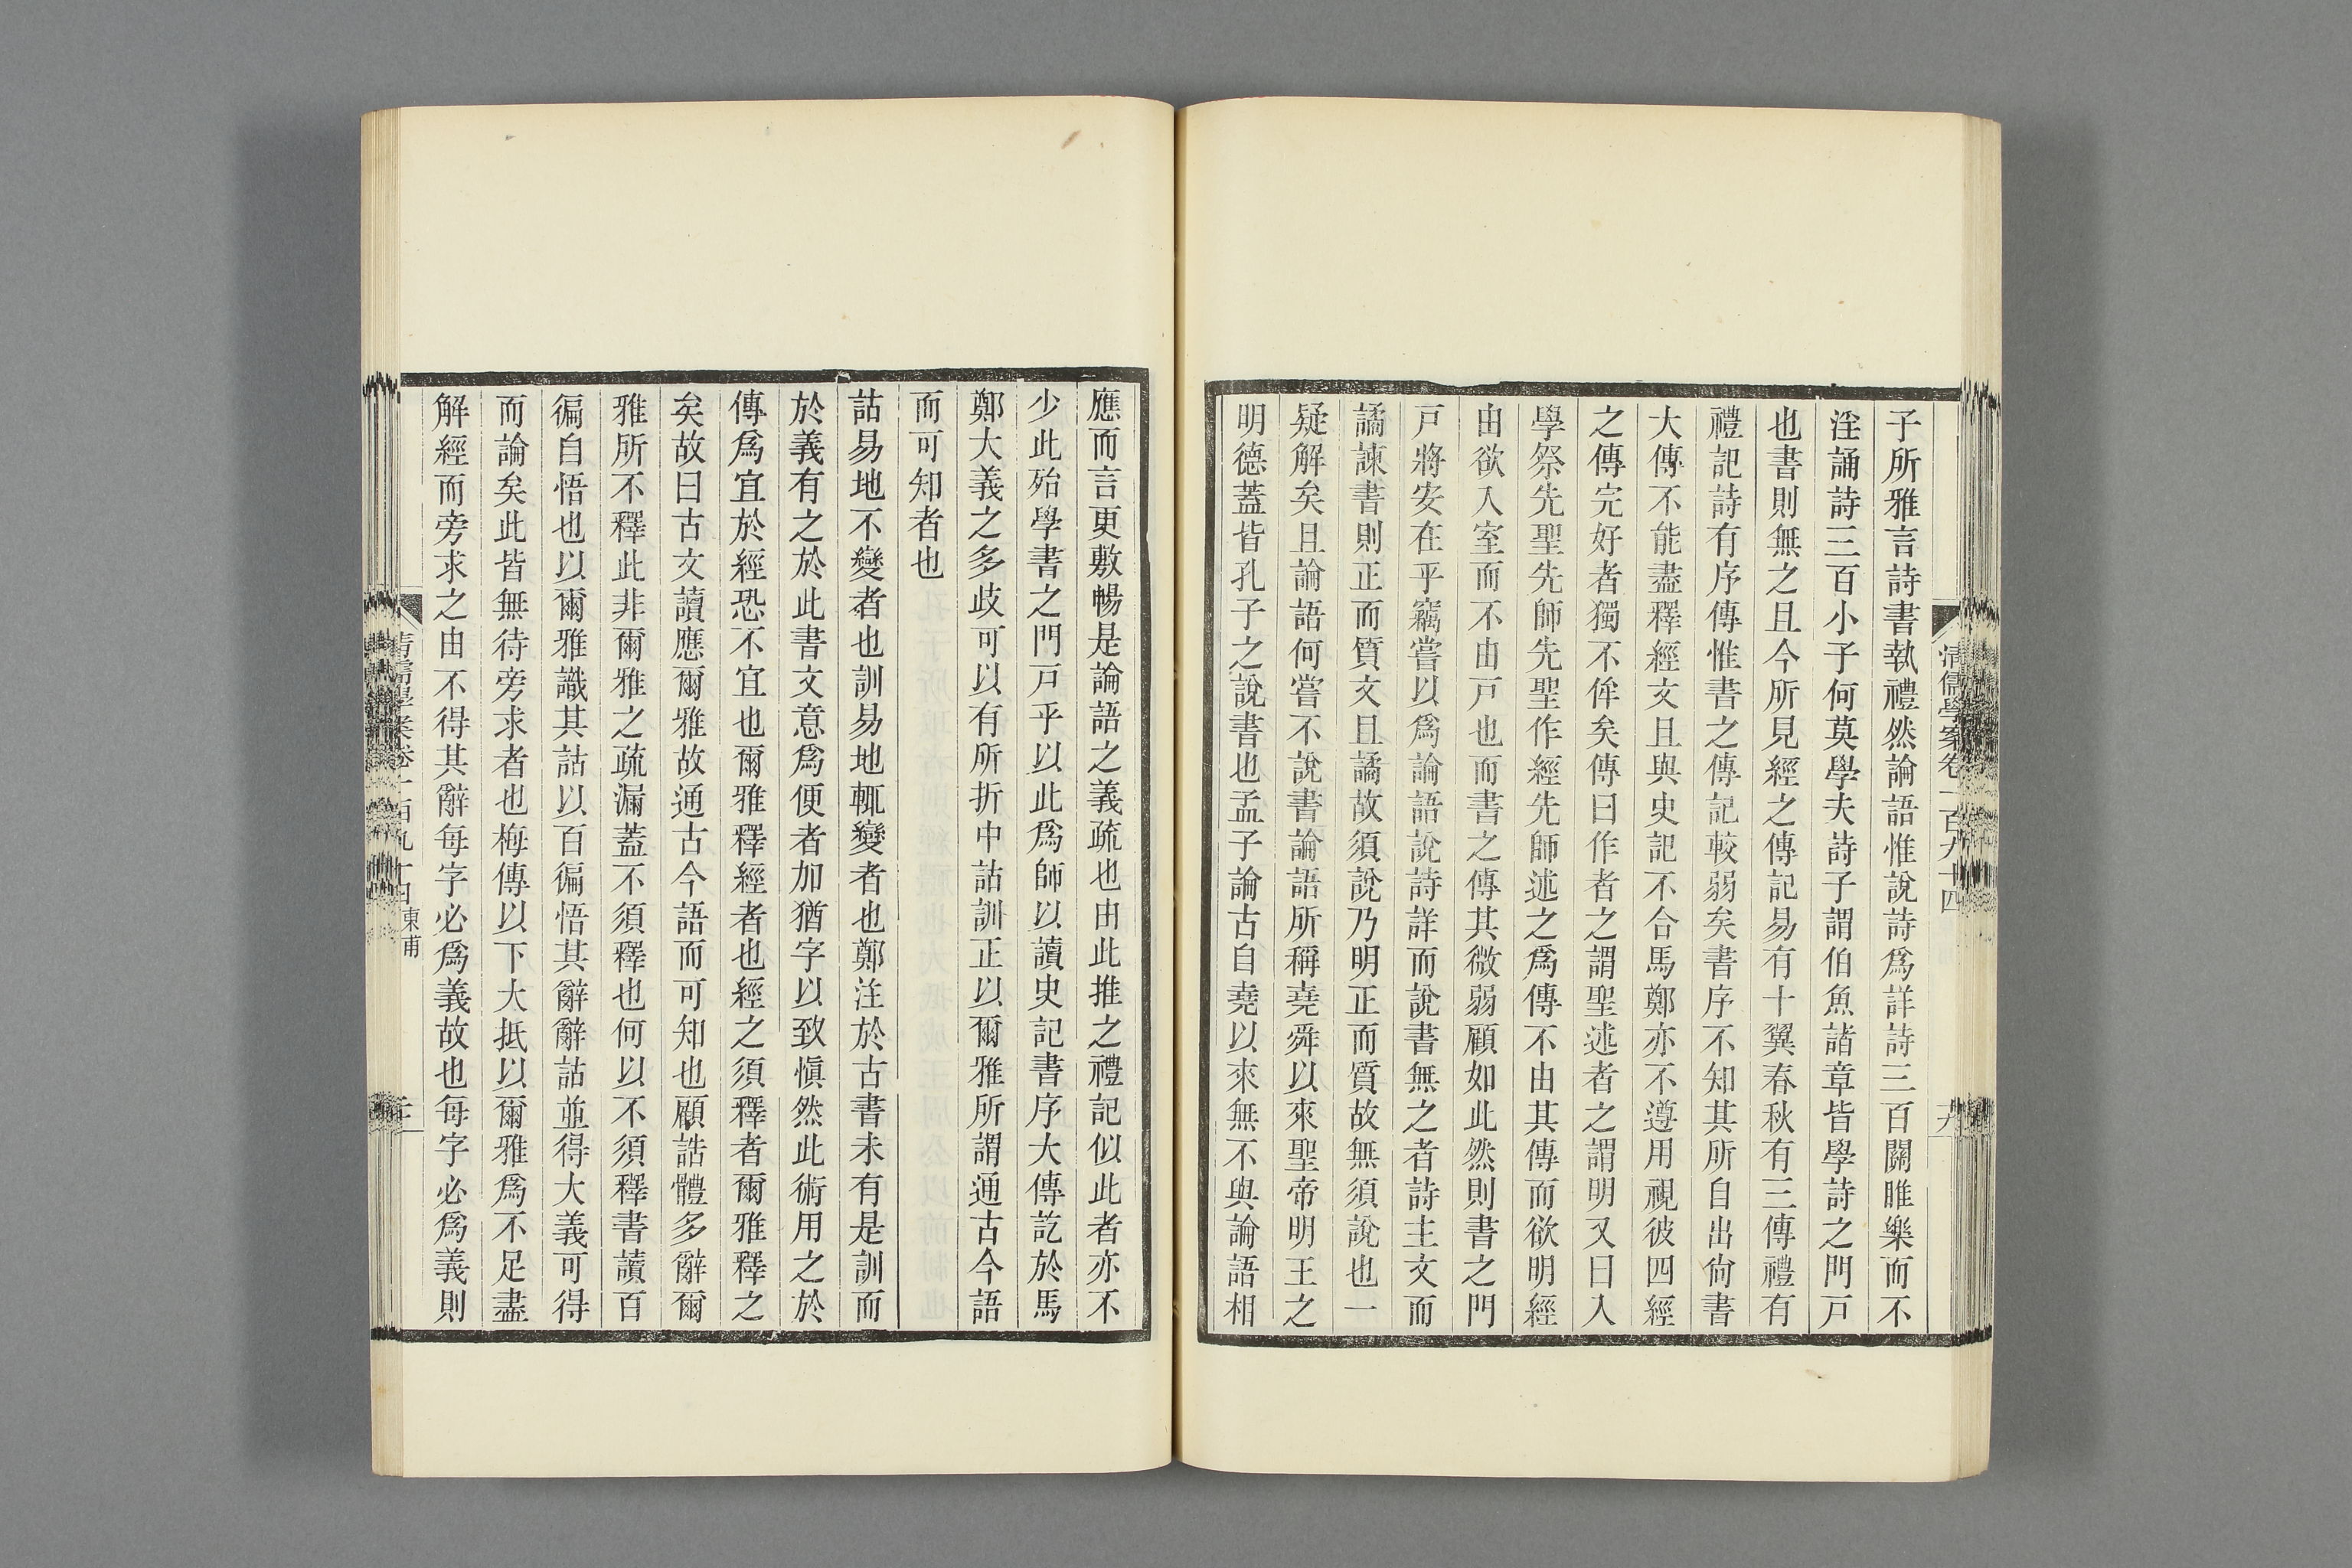 清儒學案卷一百九十四
子所雅言詩書執禮然論語惟說詩爲詳詩三百關雎樂而不
淫誦詩三百小子何莫學夫詩子謂伯魚諸章皆學詩之門戸
也書則無之且今所見經之傳記易有十翼春秋有三傳禮有
禮記詩有序傳惟書之傳記較弱矣書序不知其所自出尙書
大傳不能盡釋經文且與史記不合馬鄭亦不遵用視彼四經
之傳完好者獨不侔矣傳曰作者之謂聖述者之謂明又曰入
學祭先聖先師先聖作經先師述之爲傳不由其傳而欲明經
由欲入室而不由戸也而書之傳其微弱顧如此然則書之門
戸將安在乎竊嘗以爲論語說詩詳而說書無之者詩主文而
譎諫書則正而質文且譎故須說乃明正而質故無須說也一
疑解矣且論語何嘗不說書論語所稱堯舜以來聖帝明王之
明德蓋皆孔子之說書也孟子論古自堯以來無不與論語相
應而言更敷暢是論語之義疏也由此推之禮記似此者亦不
少此殆學書之門戸乎以此爲師以讀史記書序大傳訖於馬
鄭大義之多歧可以有所折中詁訓正以爾雅所謂通古今語
而可知者也
詁易地不變者也訓易地輒變者也鄭注於古書未有是訓而
於義有之於此書文意爲便者加猶字以致愼然此術用之於
傳爲宜於經恐不宜也爾雅釋經者也經之須釋者爾雅釋之
矣故曰古文讀應爾雅故通古今語而可知也顧誥體多辭爾
雅所不釋此非爾雅之疏漏蓋不須釋也何以不須釋書讀百
徧自悟也以爾雅識其詁以百徧悟其辭辭詁並得大義可得
而論矣此皆無待旁求者也梅傳以下大抵以爾雅爲不足盡
解經而旁求之由不得其辭每字必爲義故也每字必爲義則
東甫